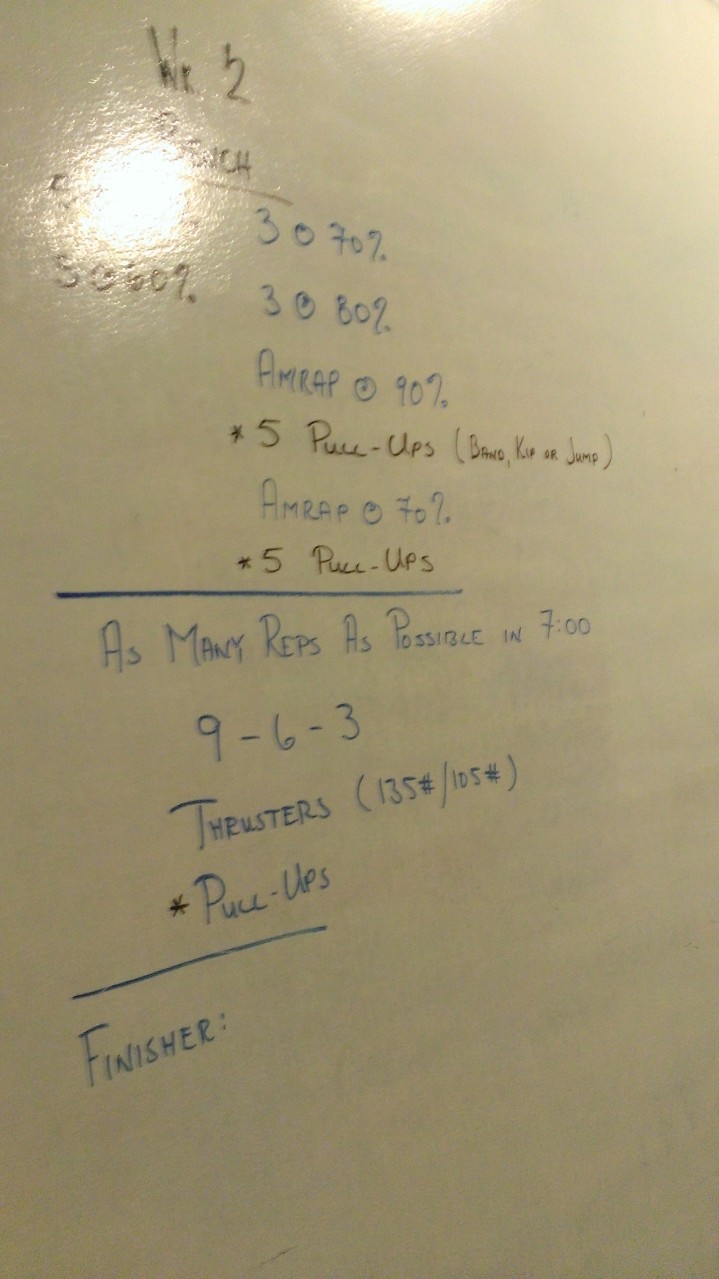 Wk 2
BENCH
3 @ 70%
@ 60%
3 @ 80%
AMRAP @ 90%
* 5 PULL-UPS (BAND, KIP OR JUMP)
AMRAP @ 70%
* 5 PULL-UPS
AS MANY REPS AS POSSIBLE IN 7:00
9-6-3
THRUSTERS (135#/105#)
* PULL-UPS
FINISHER: